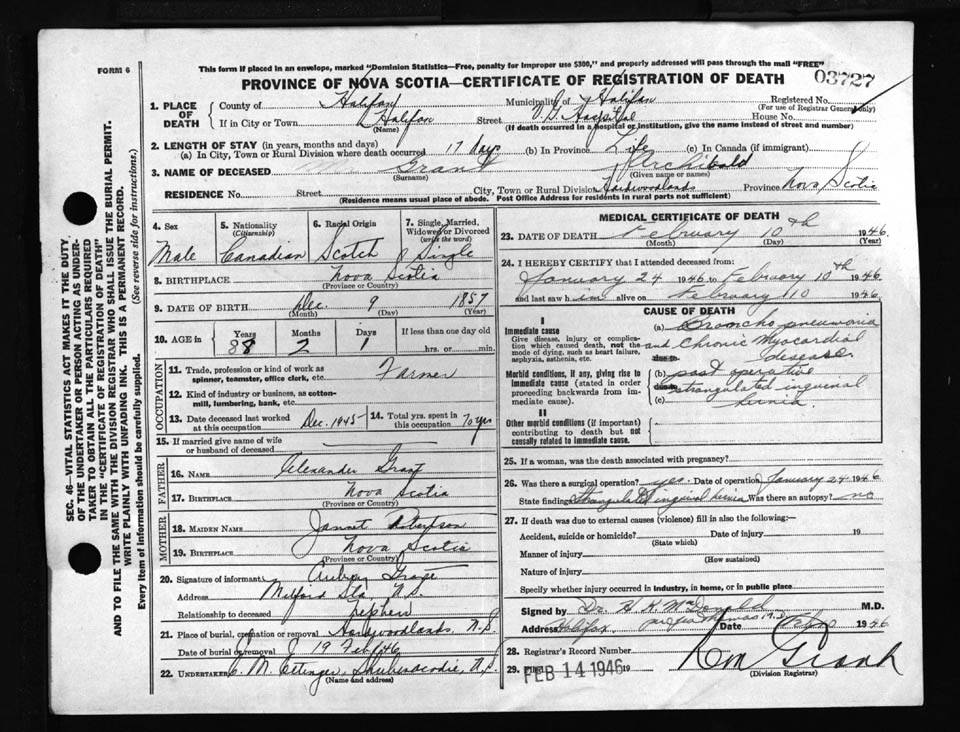 FORM 6
This form if placed in an envelope, marked "Dominion Statistics—Free, penalty for improper use $300," and properly addressed will pass through the mail "FREE"
PROVINCE OF NOVA SCOTIA—CERTIFICATE OF REGISTRATION OF DEATH
03727
1. PLACE OF DEATH
County of Halifax Municipality of Halifax Registered No.
(For use of Registrar General only)
If in City or Town Halifax Street V. G. Hospital House No.
(Name) (If death occurred in a hospital or institution, give the name instead of street and number)
2. LENGTH OF STAY (in years, months and days)
(a) In City, Town or Rural Division where death occurred 17 days (b) In Province Life (c) In Canada (if immigrant)
3. NAME OF DECEASED Grant Archibald
(Surname) (Given name or names)
RESIDENCE No. Street City, Town or Rural Division Hardwoodlands Province Nova Scotia
(Residence means usual place of abode. Post Office Address for residents in rural parts not sufficient)
SEC. 46—VITAL STATISTICS ACT MAKES IT THE DUTY
OF THE UNDERTAKER OR PERSON ACTING AS UNDER-
TAKER TO OBTAIN ALL THE PARTICULARS REQUIRED
IN THE "CERTIFICATE OF REGISTRATION OF DEATH"
AND TO FILE THE SAME WITH THE DIVISION REGISTRAR WHO SHALL ISSUE THE BURIAL PERMIT.
WRITE PLAINLY WITH UNFADING INK. THIS IS A PERMANENT RECORD.
Every item of information should be carefully supplied. (See reverse side for instructions.)
4. Sex 5. Nationality (Citizenship) 6. Racial Origin 7. Single, Married, Widowed or Divorced (write the word)
Male Canadian Scotch Single
8. BIRTHPLACE Nova Scotia
(Province or Country)
9. DATE OF BIRTH Dec. 9 1857
(Month) (Day) (Year)
10. AGE in Years Months Days If less than one day old
88 2 1 hrs. or min.
OCCUPATION
11. Trade, profession or kind of work as spinner, teamster, office clerk, etc. Farmer
12. Kind of industry or business, as cotton-mill, lumbering, bank, etc.
13. Date deceased last worked at this occupation Dec. 1945 14. Total yrs. spent in this occupation 70 yrs
15. If married give name of wife or husband of deceased
FATHER
16. NAME Alexander Grant
17. BIRTHPLACE Nova Scotia
(Province or Country)
MOTHER
18. MAIDEN NAME Jannet Robertson
19. BIRTHPLACE Nova Scotia
(Province or Country)
20. Signature of informant Aubrey Grant
Address Milford Sta, N.S.
Relationship to deceased nephew
21. Place of burial, cremation or removal Hardwoodlands, N.S.
Date of burial or removal 19 Feb/46
22. UNDERTAKER C. M. Ettinger, Shubenacadie, N.S.
(Name and address)
MEDICAL CERTIFICATE OF DEATH
23. DATE OF DEATH February 10th 1946
(Month) (Day) (Year)
24. I HEREBY CERTIFY that I attended deceased from:
January 24 1946 to February 10th 1946
and last saw him alive on February 10 1946
CAUSE OF DEATH
I
Immediate cause
Give disease, injury or complication which caused death, not the mode of dying, such as heart failure, asphyxia, asthenia, etc.
(a) Broncho pneumonia
and Chronic Myocardial
due to disease
Morbid conditions, if any, giving rise to immediate cause (stated in order proceeding backwards from immediate cause).
(b) post operative
due to strangulated inguinal
(c) hernia
II
Other morbid conditions (if important) contributing to death but not causally related to immediate cause.
25. If a woman, was the death associated with pregnancy?
26. Was there a surgical operation? yes. Date of operation January 24 1946
State findings Strangulated inguinal hernia Was there an autopsy? no
27. If death was due to external causes (violence) fill in also the following:—
Accident, suicide or homicide? Date of injury 19
(State which)
Manner of injury
(How sustained)
Nature of injury
Specify whether injury occurred in industry, in home, or in public place
Signed by Dr. H. K. McDonald M.D.
Address Halifax Date 1946
28. Registrar's Record Number
29. FEB 14 1946 19
(Division Registrar)